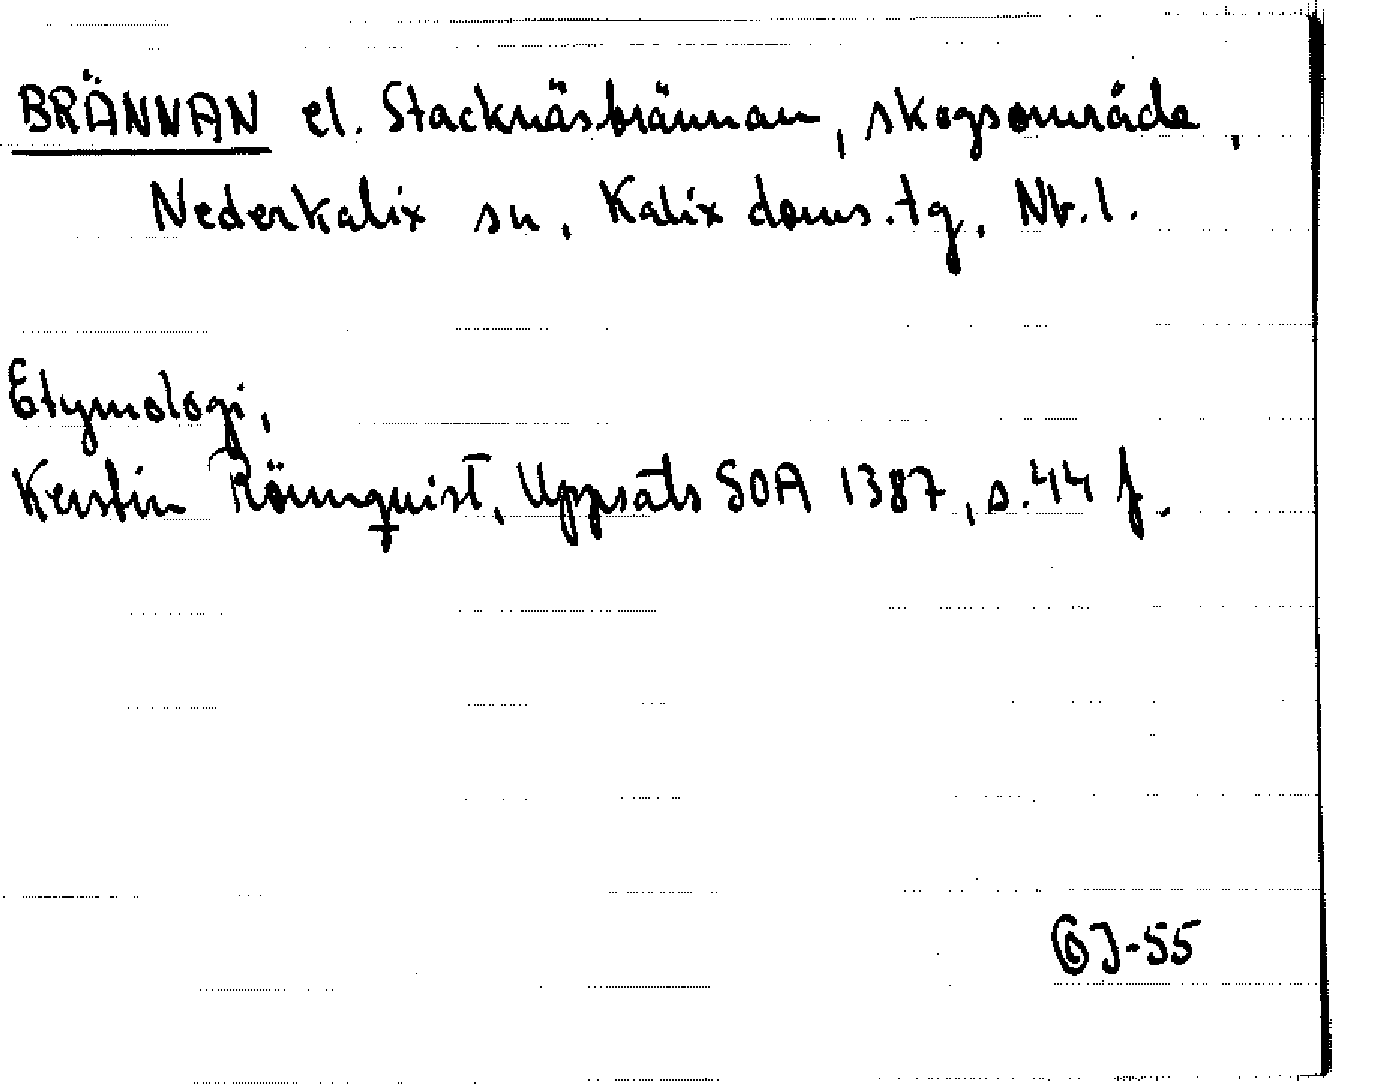 BRÄNNAN el. Stacknäsbrännan, skogsområde,
Nederkalix sn, Kalix doms.tg, Nb.l.
Etymologi,
Kerstin Rönnquist, Uppsats SOA 1387, s.44 f.
GJ-55